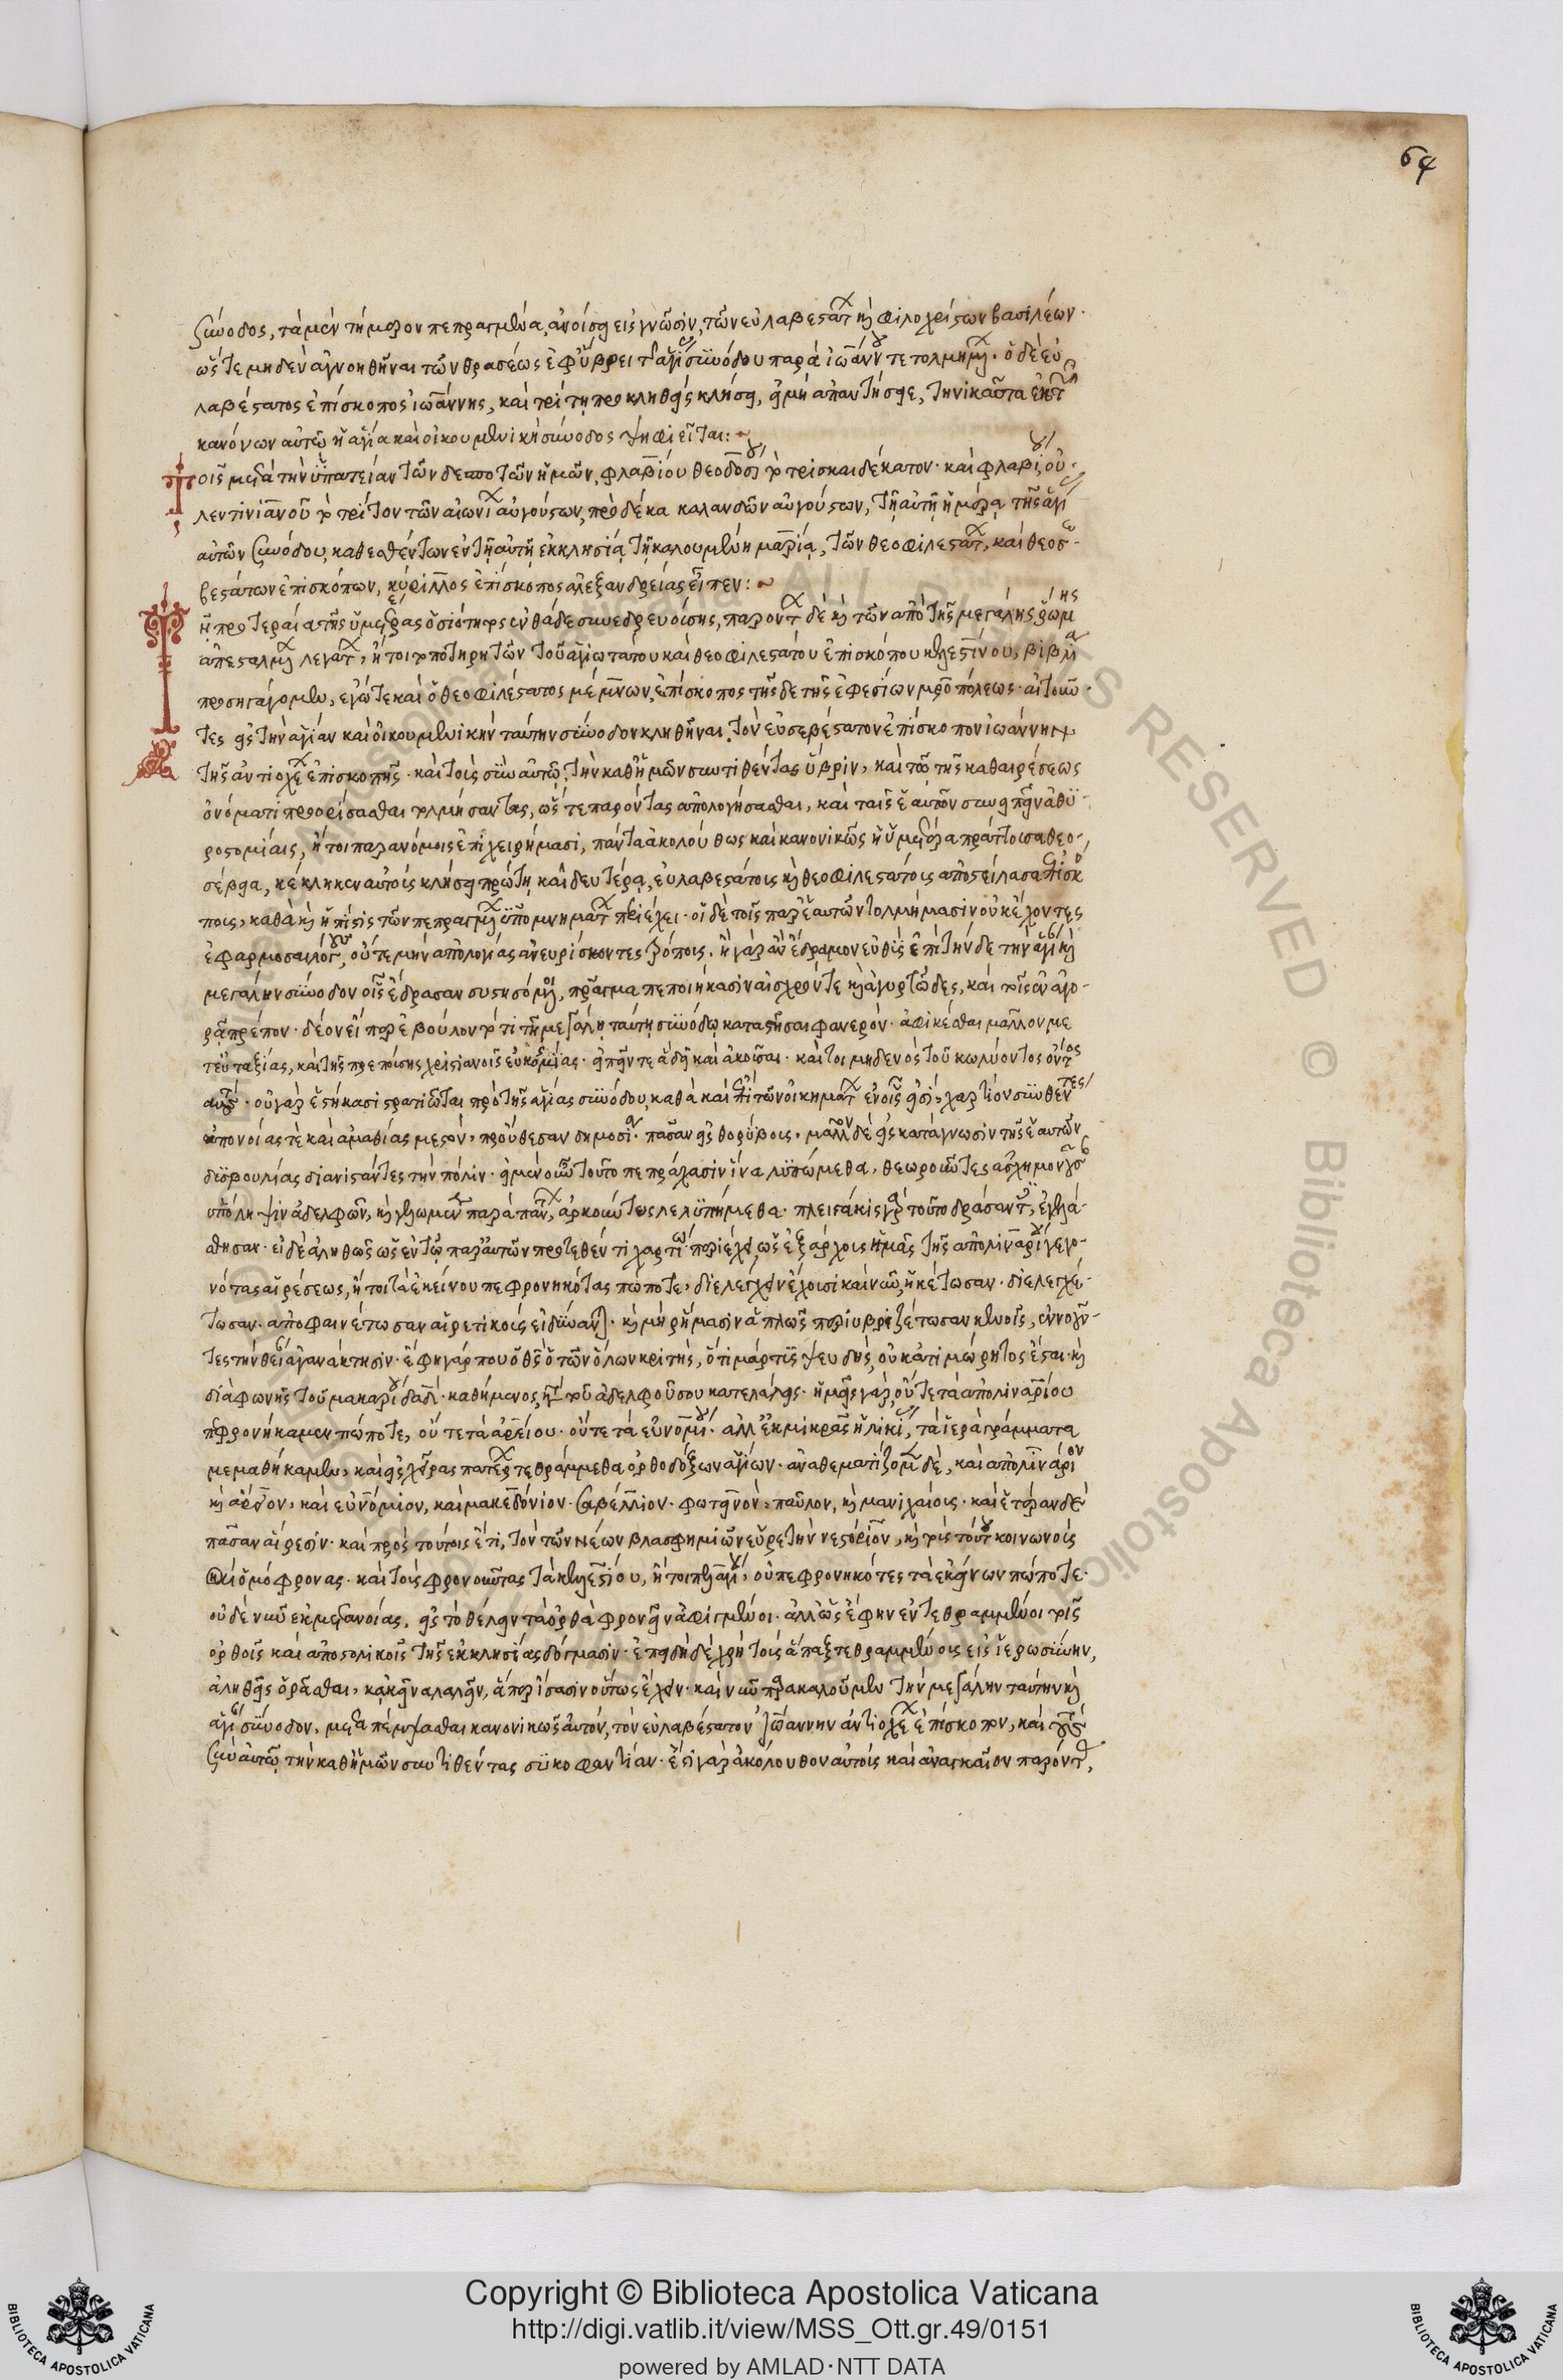 64
σύνοδος, τὰ μὲν τήμερον πεπραγμένα, ἀνοίσει εἰς γνῶσιν, τῶν εὐλαβεστάτ καὶ φιλοχρίστων βασιλέων.
ὥστε μηδὲν ἀγνοηθῆναι τῶν θρασέως ἐφ' ὕβρει τῆς ἁγί συνόδου παρὰ ἰωάννου τετολμημ. ὁ δὲ εὐ
λαβέστατος ἐπίσκοπος ἰωάννης, καὶ τρίτη προκληθεὶς κλήσει, εἰ μὴ ἀπαντήσειε, τηνικαῦτα ἐκ τῶν
κανόνων αὐτῷ ἡ ἁγία καὶ οἰκουμενικὴ σύνοδος ψηφιεῖται:
Τοῖς μετὰ τὴν ὑπατείαν τῶν δεσποτῶν ἡμῶν, φλαβίου θεοδοσίου τὸ τρισκαιδέκατον. καὶ φλαβίου οὐ
λεντινιανοῦ τὸ τρίτον τῶν αἰωνί αὐγούστων, πρὸ δέκα καλανδῶν αὐγούστων, τῇ αὐτῇ ἡμέρᾳ τῆς ἁγί
αὐτῶν συνόδου, καθεσθέντων ἐν τῇ αὐτῇ ἐκκλησίᾳ τῇ καλουμένῃ μαρίᾳ, τῶν θεοφιλεστάτ, καὶ θεοσ-
βεστάτων ἐπισκόπων, κύριλλος ἐπίσκοπος ἀλεξανδρείας εἶπεν:
ἡ προτεραία τῆς ὑμετέρας ὁσιότητος ἐνθάδε συνεδρευούσης, παρόντ δὲ καὶ τῶν ἀπὸ τῆς μεγάλης ῥώμης
ἀπεσταλμ λεγάτ, ἤτοι τοποτηρητῶν τοῦ ἁγιωτάτου καὶ θεοφιλεστάτου ἐπισκόπου κελεστίνου, βιβλία
προσηγάγομεν, ἐγώ τε καὶ ὁ θεοφιλέστατος μέμνων, ἐπίσκοπος τῆσδε τῆς ἐφεσίων μροπόλεως. αἰτοῦν
τες εἰς τὴν ἁγίαν καὶ οἰκουμενικὴν ταύτην σύνοδον κληθῆναι τὸν εὐσεβέστατον ἐπίσκοπον ἰωάννην
τῆς ἀντιοχέ ἐπισκοπῆς. καὶ τοὺς σὺν αὐτῷ, τὴν καθ' ἡμῶν συντιθέντας ὕβριν, καὶ τῷ τῆς καθαιρέσεως
ὀνόματι προσρίσασθαι τολμήσαντας, ὥς τε παρόντας ἀπολογήσασθαι, καὶ ταῖς ἑαυτῶν συνειπεῖν ἀθυ-
ροστομίαις, ἤτοι παρανόμοις ἐπιχειρήμασι, πάντα ἀκολούθως καὶ κανονικῶς ἡ ὑμετέρα πράττουσα θεο-
σέβεια, κέκληκεν αὐτοὺς κλήσει πρώτῃ καὶ δευτέρᾳ, εὐλαβεστάτους καὶ θεοφιλεστάτους ἀποστείλασα ἐπισκό
πους, καθὰ καὶ ἡ πίστις τῶν πεπραγμ ὑπομνημάτ περιέχει. οἱ δὲ τοῖς παρ' ἑαυτῶν τολμήμασιν οὐκ ἔχοντες
ἐφαρμόσαι λόγους, οὔτε μὴν ἀπολογίας ἀνευρίσκοντες τρόπους. ἦ γὰρ ἂν ἔδραμον εὐθὺς ἐπὶ τήνδε τὴν ἁγί καὶ
μεγάλην σύνοδον οἷς ἔδρασαν συστησόμενοι, πρᾶγμα πεποιήκασιν αἰσχρόν τε καὶ ἀγυρτῶδες, καὶ τοῖς ἐν ἀγο-
ρᾷ πρέπον. δέον εἴπερ ἐβούλοντό τι τῇ μεγάλῃ ταύτῃ συνόδῳ καταστῆσαι φανερόν. ἀφικέσθαι μᾶλλον με
τ' εὐταξίας, καὶ τῆς πρεπούσης χριστιανοῖς εὐκοσμίας. εἰπεῖν τε ἃ δεῖ καὶ ἀκοῦσαι. καίτοι μηδενὸς τοῦ κωλύοντος ὄντος
αὐτούς. οὐ γὰρ ἑστήκασι στρατιῶται πρὸ τῆς ἁγίας συνόδου, καθὰ καὶ ἐπὶ τῶν οἰκημάτ ἐν οἷς εἰσί. χαρτίον συνθέντες
ἀπονοίας τὲ καὶ ἀμαθίας μεστόν, προὔθεσαν δημοσίᾳ. πᾶσαν εἰς θορύβους. μᾶλλον δὲ εἰς κατάγνωσιν τῆς ἑαυτῶν
δυσβουλίας διανιστάντες τὴν πόλιν. εἰ μὲν οὖν τοῦτο πεπράχασιν ἵνα λυπώμεθα. θεωροῦντες ἀσχημον
ὑπόληψιν ἀδελφῶν, καὶ παρὰ πᾶν, ἀρκούντως λελυπήμεθα. πλειστάκις γὰρ τοῦτο δράσαντες, ἐγελά-
σθησαν. εἰ δὲ ἀληθῶς ὡς ἐν τῷ παρ' αὐτῶν προτεθέντι χαρτίῳ περιέχει, ὡς ἐξάρχους ἡμᾶς τῆς ἀπολιναρίου γεγο-
νότας αἱρέσεως, ἤτοι τὰ ἐκείνου πεφρονηκότας πώποτε, διελέγχειν ἔχουσι κἂν νῦν, ἡκέτωσαν. διελεγχέ-
τωσαν. ἀποφαινέτωσαν αἱρετικοὺς εἰ δύναντ. καὶ μὴ ῥήμασιν ἁπλῶς περιυβριζέτωσαν κενοῖς, ἐννοοῦν-
τες τὴν θεί ἀγανάκτησιν. ἔφη γάρ που ὁ θς ὁ τῶν ὅλων κριτής, ὅτι μάρτυς ψευδής, οὐκ ἀτιμώρητος ἔσται. καὶ
διὰ φωνῆς τοῦ μακαρίου δαδ. καθήμενος κατὰ τοῦ ἀδελφοῦ σου κατελάλεις. ἡμεῖς γὰρ, οὔτε τὰ ἀπολιναρίου
πεφρονήκαμεν πώποτε, οὔτε τὰ ἀρείου. οὔτε τὰ εὐνομίου. ἀλλ' ἐκ μικρᾶς ἡλικί, τὰ ἱερὰ γράμματα
μεμαθήκαμεν, καὶ εἰς χεῖρας πατέρ τεθράμμεθα ὀρθοδόξων ἁγίων. ἀναθεματίζομ δὲ, καὶ ἀπολινάριον
καὶ ἄρειον, καὶ εὐνόμιον, καὶ μακεδόνιον. σαβέλλιον. φωτεινὸν, παῦλον, καὶ μανιχαίους. καὶ ἑτέραν δὲ
πᾶσαν αἵρεσιν. καὶ πρὸς τούτοις ἔτι, τὸν τῶν νέων βλασφημιῶν εὑρετὴν νεστόριον, καὶ τοὺς τούτου κοινωνοὺς
καὶ ὁμόφρονας. καὶ τοὺς φρονοῦντας τὰ κελεστίου, ἤτοι πελαγίου, οὐ πεφρονηκότες τὰ ἐκείνων πώποτε.
οὐδὲ νῦν ἐκ μετανοίας, εἰς τὸ θέλειν τὰ ὀρθὰ φρονεῖν ἀφιγμένοι. ἀλλ' ὡς ἔφην ἐντεθραμμένοι τοῖς
ὀρθοῖς καὶ ἀποστολικοῖς τῆς ἐκκλησίας δόγμασιν. ἐπειδὴ δὲ χρὴ τοὺς ἅπαξ τεθραμμένους εἰς ἱερωσύνην,
ἀληθεῖς ὁρᾶσθαι, κἀκεῖνα λαλεῖν, ἅπερ ἴσασιν οὕτως ἔχειν. καὶ νῦν παρακαλοῦμεν τὴν μεγάλην ταύτην καὶ
ἁγί σύνοδον, μεταπέμψασθαι κανονικῶς αὐτόν, τὸν εὐλαβέστατον ἰωάννην ἀντιοχέ ἐπίσκοπον, καὶ τοὺς
σὺν αὐτῷ τὴν καθ' ἡμῶν συντιθέντας συκοφαντίαν. ἔστι γὰρ ἀκόλουθον αὐτοὺς καὶ ἀναγκαῖον παρόντας,
ALL RIGHTS RESERVED © Biblioteca Apostolica Vaticana
Copyright © Biblioteca Apostolica Vaticana
http://digi.vatlib.it/view/MSS_Ott.gr.49/0151
powered by AMLAD·NTT DATA
BIBLIOTECA APOSTOLICA VATICANA
BIBLIOTECA APOSTOLICA VATICANA